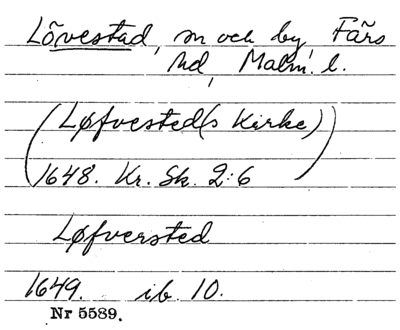 Lövestad, sn och by, Färs
hd, Malm. l.
(Løfvested(s Kirke))
1648. Kr. Sk. 2:6
Løfversted
1649. ib. 10.
Nr 5589.